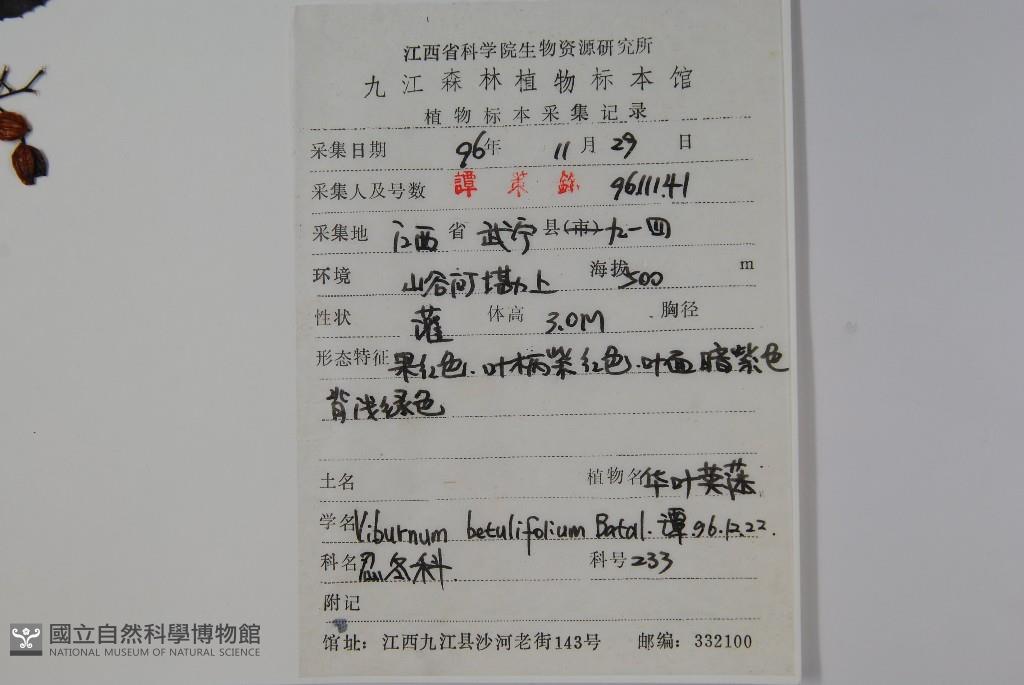 江西省科学院生物资源研究所
九江森林植物标本馆
植物标本采集记录
采集日期 96年 11月 29 日
采集人及号数 譚策銘 9611141
采集地 江西 省 武宁 县(市) 九一四
环境 山谷河堪力上 海拔 500 m
性状 灌 体高 3.0M 胸径
形态特征 果红色.叶柄紫红色.叶面暗紫色
背浅绿色
土名 植物名 华叶荚蒾
学名 Viburnum betulifolium Batal. 譚 96.12.22.
科名 忍冬科 科号 233
附记
馆址：江西九江县沙河老街143号 邮编：332100
國立自然科學博物館
NATIONAL MUSEUM OF NATURAL SCIENCE